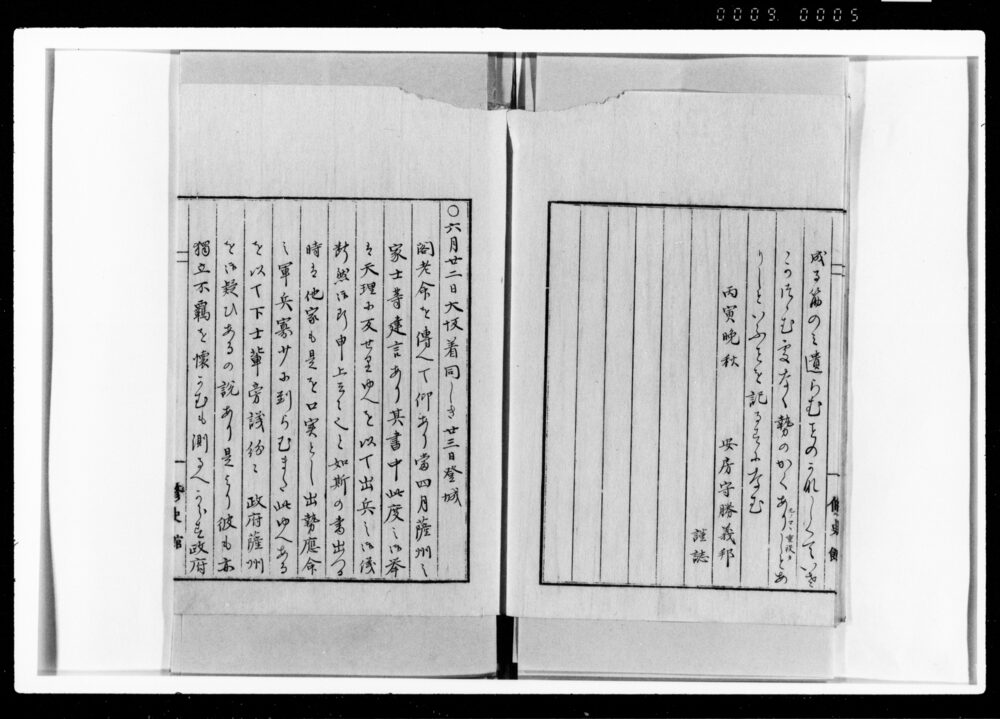 0009 0005
成る節のミ遺らむものうれしくていさ
こかけらむ実なく勢のかくありしとあ
りしといふことを記るすになむ
丙寅晩秋
安房守勝義邦
謹誌
二
○六月廿二日大坂着同しき廿三日登城
閣老命を傳へて仰あり當四月薩州之
家士等建言あり其書中此度之御举
は天理に反せりゆへを以て出兵之御儀
断然御断申上云々と如斯の書出つる
時は他家も是を口実とし出勢應命
之軍兵寡少に到らむまた此ゆへある
を以て下士輩旁議紛々政府薩州
を御疑ひあるの説あり是より彼も亦
獨立不羈を懐かむも測るへからす政府
二